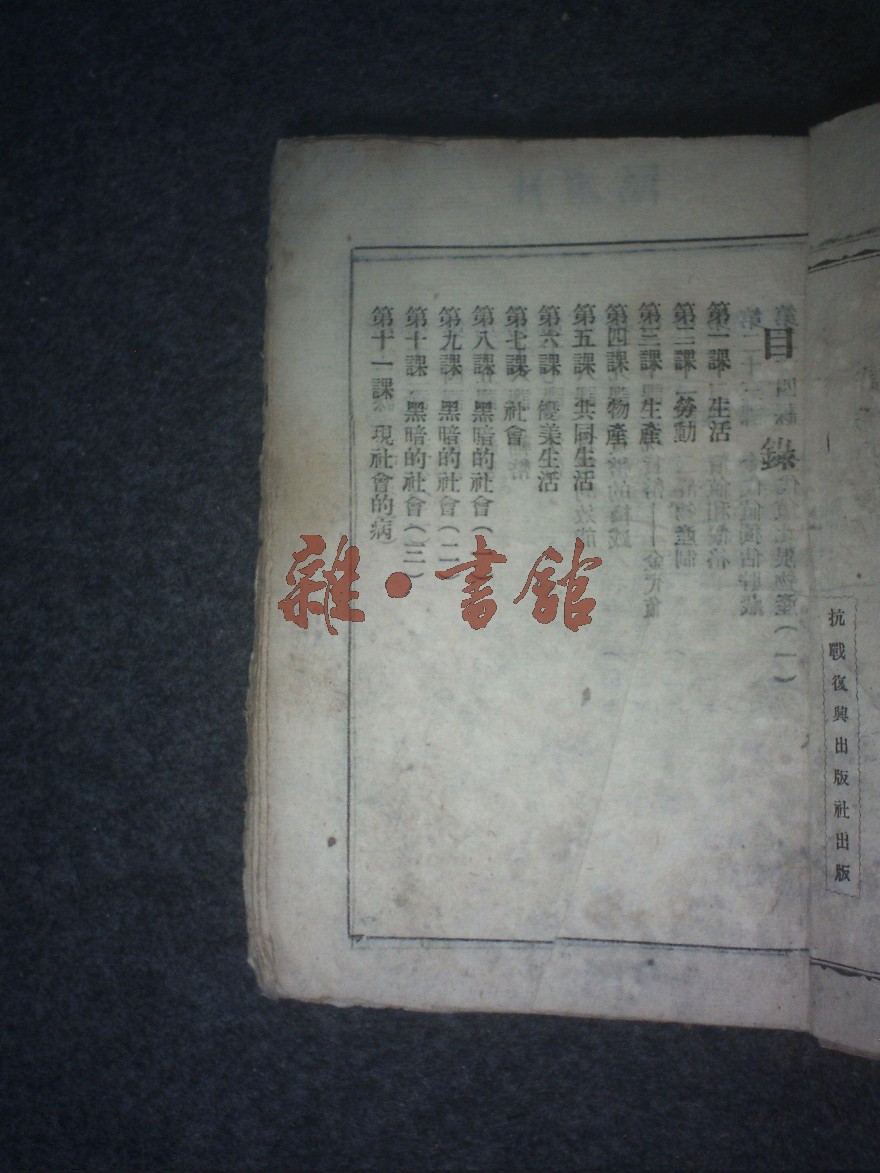 抗戰復興出版社出版
目錄
第一課 生活
第二課 勞動
第三課 生產
第四課 物產
第五課 共同生活
第六課 優美生活
第七課 社會
第八課 黑暗的社會(一)
第九課 黑暗的社會(二)
第十課 黑暗的社會(三)
第十一課 現社會的病
雜·書館